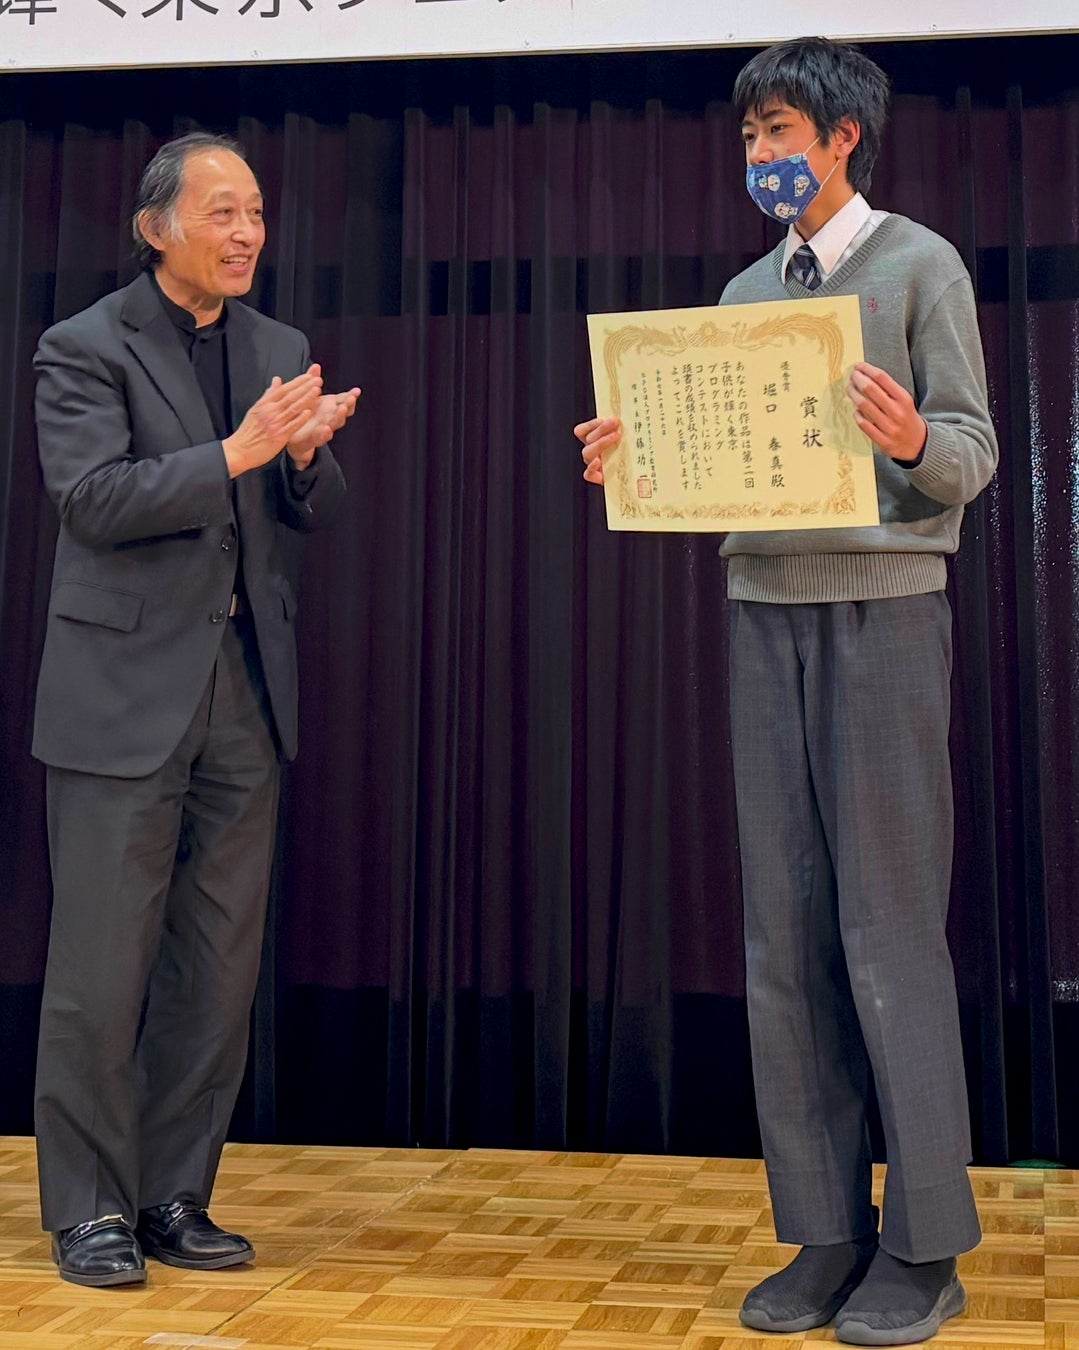 輝く東京フェス
賞状
優秀賞
堀口 春真殿
あなたの作品は第二回
子供が輝く東京
プログラミング
コンテストにおいて
頭書の成績を収められました
よってこれを賞します
令和七年一月二十六日
理事長 伊藤功一